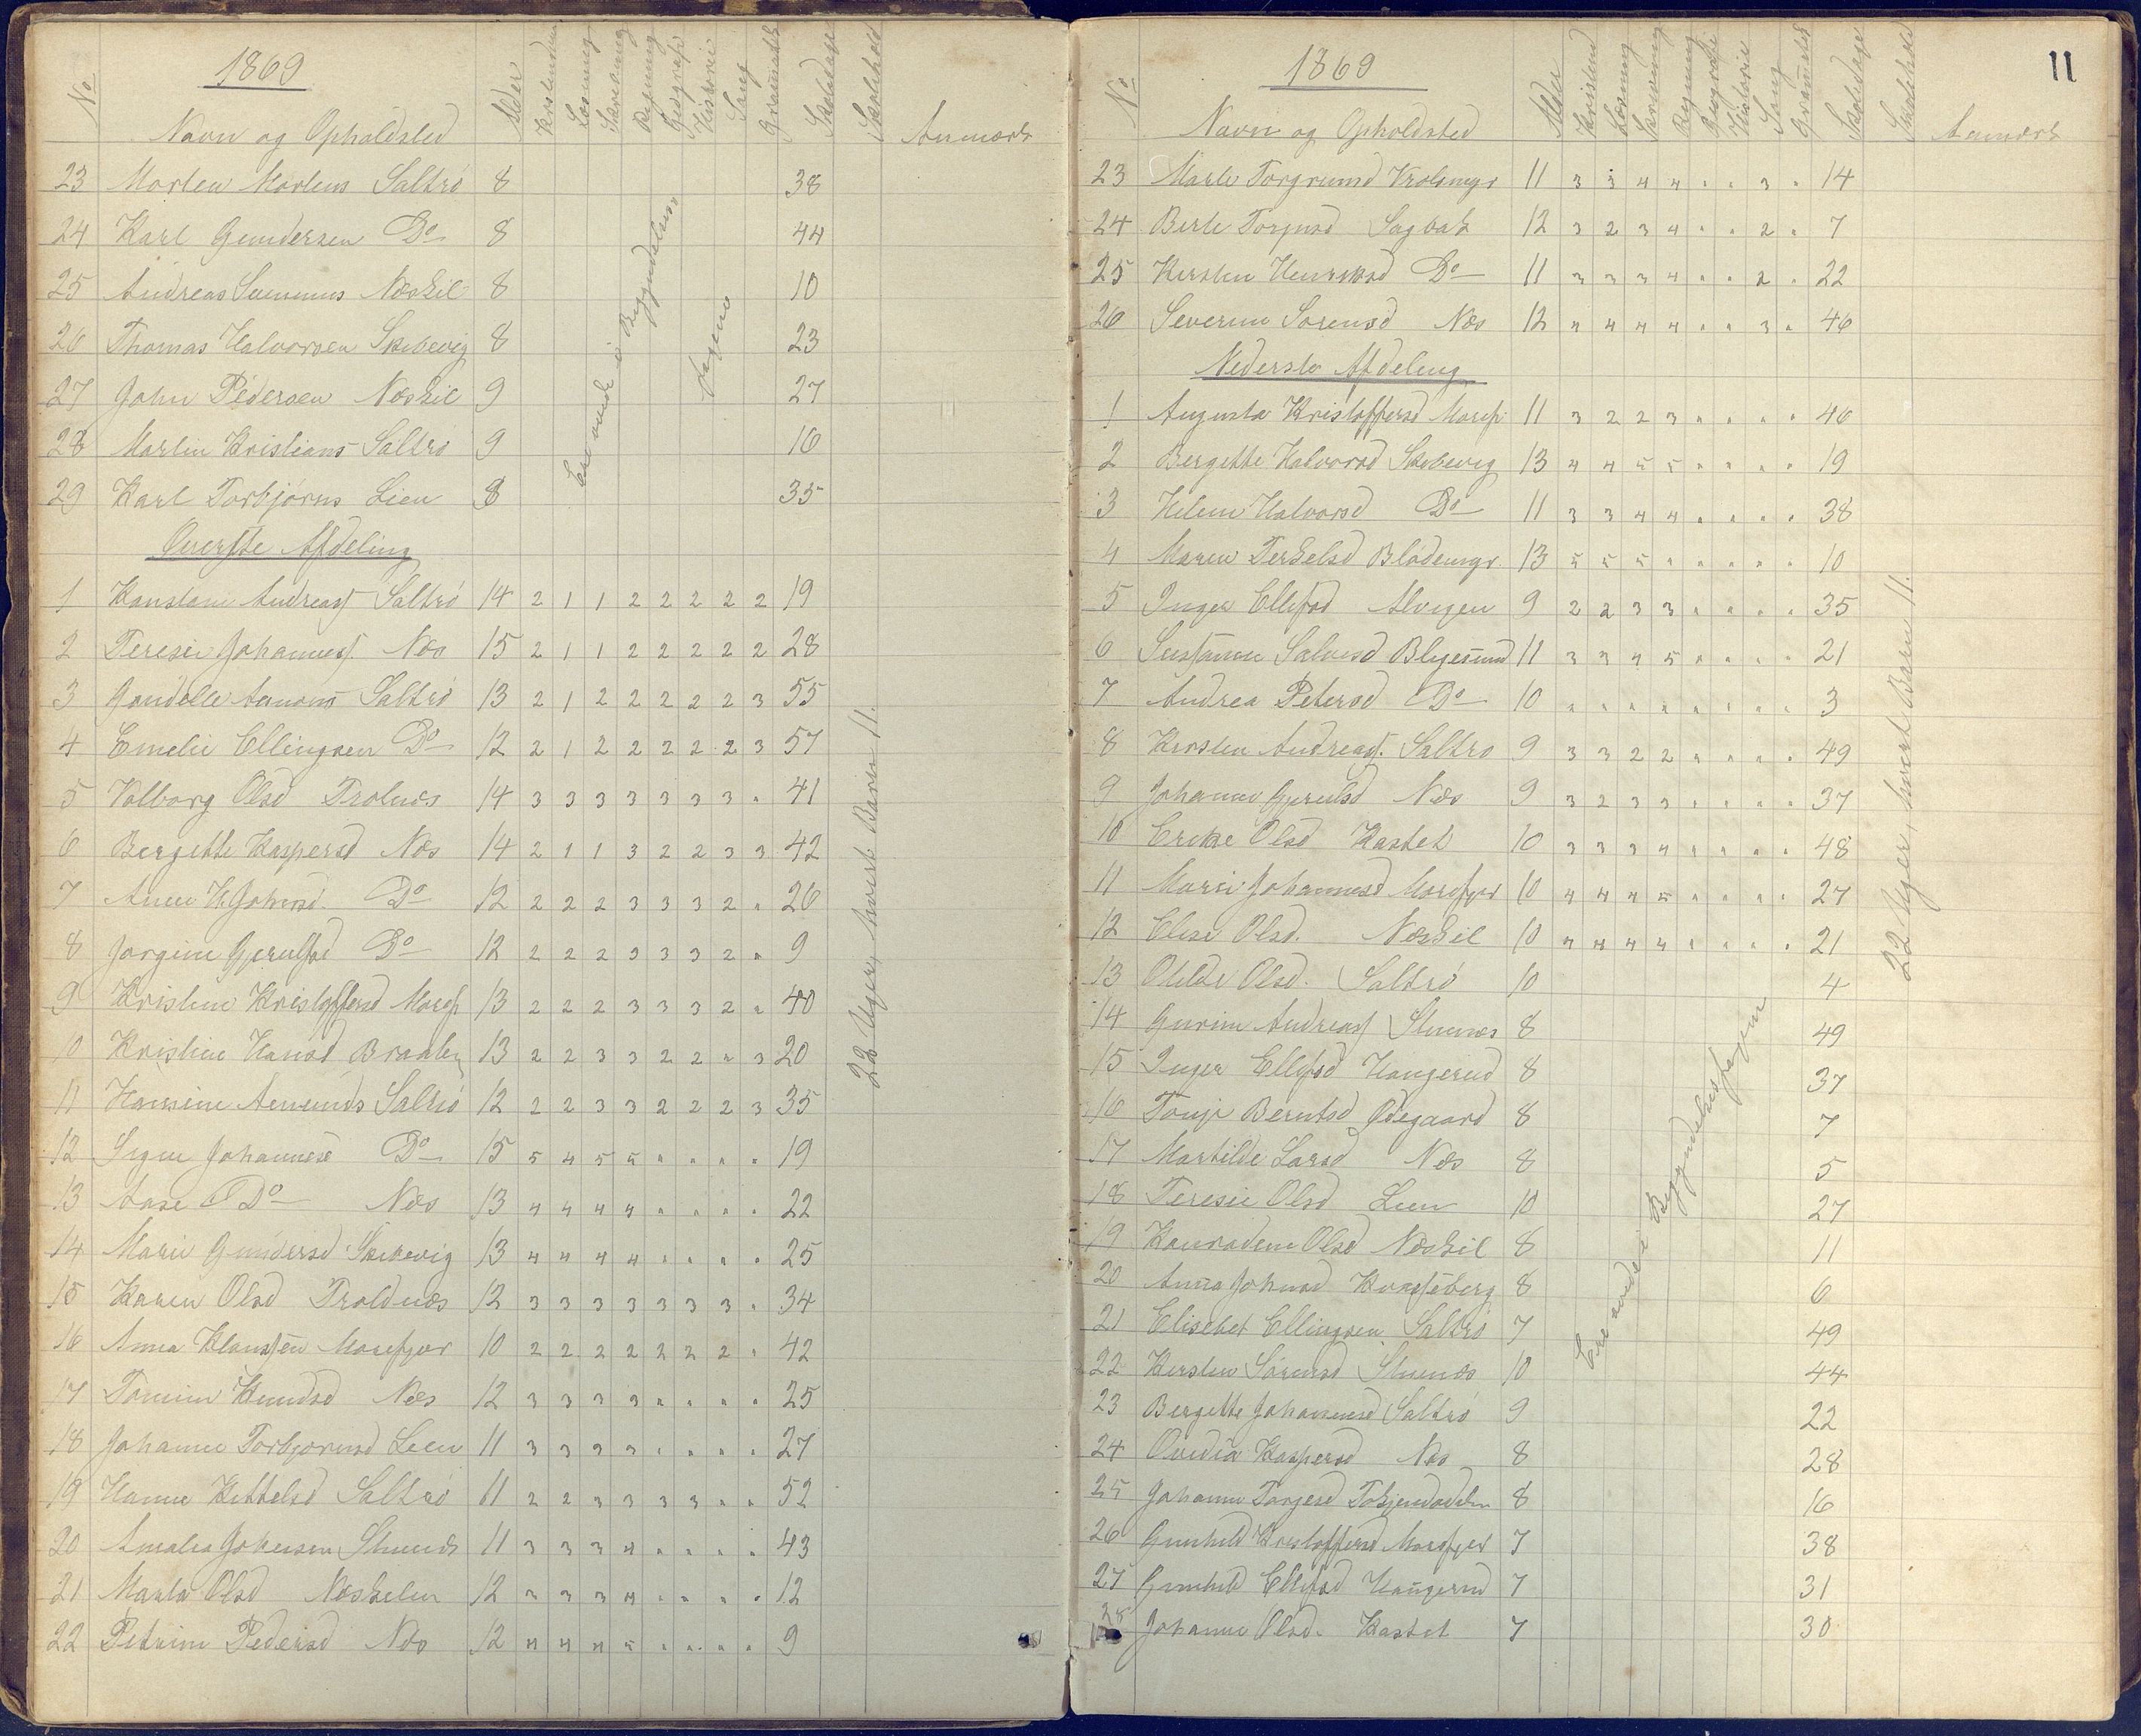 1869
No
Navn og Opholdsted Alder Kristendom Læsning Skrivning Regning Geografi Historie Sang Grammatik Skoledage Skolehold Anmærk
23 Morten Mortens Saltrö 8 38
24 Karl Gundersen Do 8 44
25 Andreas Næskil 8 10
26 Thomas Halvorsen Skibevig 8 23
27 John Pedersen Næskil 9 27
28 Martin Kristians Saltrö 9 16
29 Karl Torbjörns Lien 8 35
Ere endnu i Begyndelsen
Øverste Afdeling
1 Andreas Saltrö 14 2 1 1 2 2 2 2 2 19
2 Teresie Johannes Næs 15 2 1 1 2 2 2 2 2 28
3 Saltrö 13 2 1 2 2 2 2 2 3 55
4 Emelie Ellingsen Do 12 2 1 2 2 2 2 2 3 57
5 Valborg Olsd Trolnæs 14 3 3 3 3 3 3 3 " 41
6 Bergitte Kaspersd Næs 14 2 1 1 3 2 2 3 3 42
7 Anne H. Johnsd. Do 12 2 2 2 3 3 3 2 " 26
8 Jorgine Gjerulfsd Do 12 2 2 2 3 3 3 2 " 9
9 Kristine Kristoffersd Morefj 13 2 2 2 3 3 3 2 " 40
10 Kristine Hansd 13 2 2 3 3 2 2 " 3 20
11 Hansine Amunds Saltrö 12 2 2 3 3 2 2 2 3 35
12 Signe Johannesd Do 15 5 4 5 5 " " " " 19
13 Aase Do Næs 13 4 4 4 4 " " " " 22
14 Marie Gundersd Skibevig 13 4 4 4 4 " " " " 25
15 Karen Olsd Troldnæs 12 3 3 3 3 3 3 3 " 34
16 Anna Klaussen Morefjær 10 2 2 2 2 2 2 2 " 42
17 Tomine Knudsd Næs 12 3 3 3 3 " " " " 25
18 Johanne Torbjornsd Lien 11 3 3 3 3 " " " " 27
19 Hanne Kittelsd Saltrö 11 2 2 3 3 3 3 " " 52
20 Amalia Johnsen 11 3 3 3 4 " " " " 43
21 Marta Olsd Næskilen 12 3 3 3 4 " " " " 12
22 Petrine Pedersd Næs 12 4 4 4 5 " " " " 9
22 Uger, hvert Barn 11.
11
1869
No
Navn og Opholdsted Alder Kristend Læsning Skrivning Regning Geografi Historie Sang Grammatik Skoledage Skolehold Anmærk
23 Marte Torgrimsd 11 3 3 4 4 " " 3 " 14
24 Berte Sagbak 12 3 2 3 4 " " 2 " 7
25 Kirsten Henriksd Do 11 3 3 3 4 " " 2 " 22
26 Severine Sorensd Næs 12 4 4 4 4 " " 3 " 46
Nederste Afdeling
1 Augusta Kristoffersd Morefj 11 3 2 2 3 " " " " 46
2 Bergitte Halvorsd Skibevig 13 4 4 5 5 " " " " 19
3 Helene Halvorsd Do 11 3 3 4 4 " " " " 38
4 Maren Terkelsd Blödemyr 13 5 5 5 " " " " " 10
5 Inger Ellefsd 9 2 2 3 3 " " " " 35
6 Susanne Salvesd 11 3 3 4 5 " " " " 21
7 Andrea Petersd Do 10 " " " " " " " " 3
8 Kirsten Andreas. Saltrö 9 3 3 2 2 " " " " 49
9 Johanne Gjerulsd Næs 9 3 2 3 3 " " " " 37
10 Olsd Kastet 10 3 3 3 4 " " " " 48
11 Marie Johannesd Morefjær 10 4 4 4 5 " " " " 27
12 Elise Olsd. Næskil 10 4 4 4 4 " " " " 21
13 Olsd. Saltrö 10 4
14 Gurine Andreas 8 49
15 Inger Ellefsd Haugerud 8 37
16 Tonje Berntsd Ødegaard 8 7
17 Martilde Larsd Næs 8 5
18 Teresie Olsd Lien 10 27
19 Konradine Olsd Næskil 8 11
20 Anna Johnsd 8 6
21 Elisebet Ellingsen Saltrö 7 49
22 Kirsten Sörensd 10 44
23 Bergitte Johannesd Saltrö 9 22
24 Ovidia Kaspersd Næs 8 28
25 Johanne Torjesd 8 16
26 Gunhild Kristoffersd Morefjær 7 38
27 Gunhild Ellefsd Haugerud 7 31
28 Johanne Olsd. Kastet 7 30
Ere endnu i Begyndelsesfagene
22 Uger, hvert Barn 11.